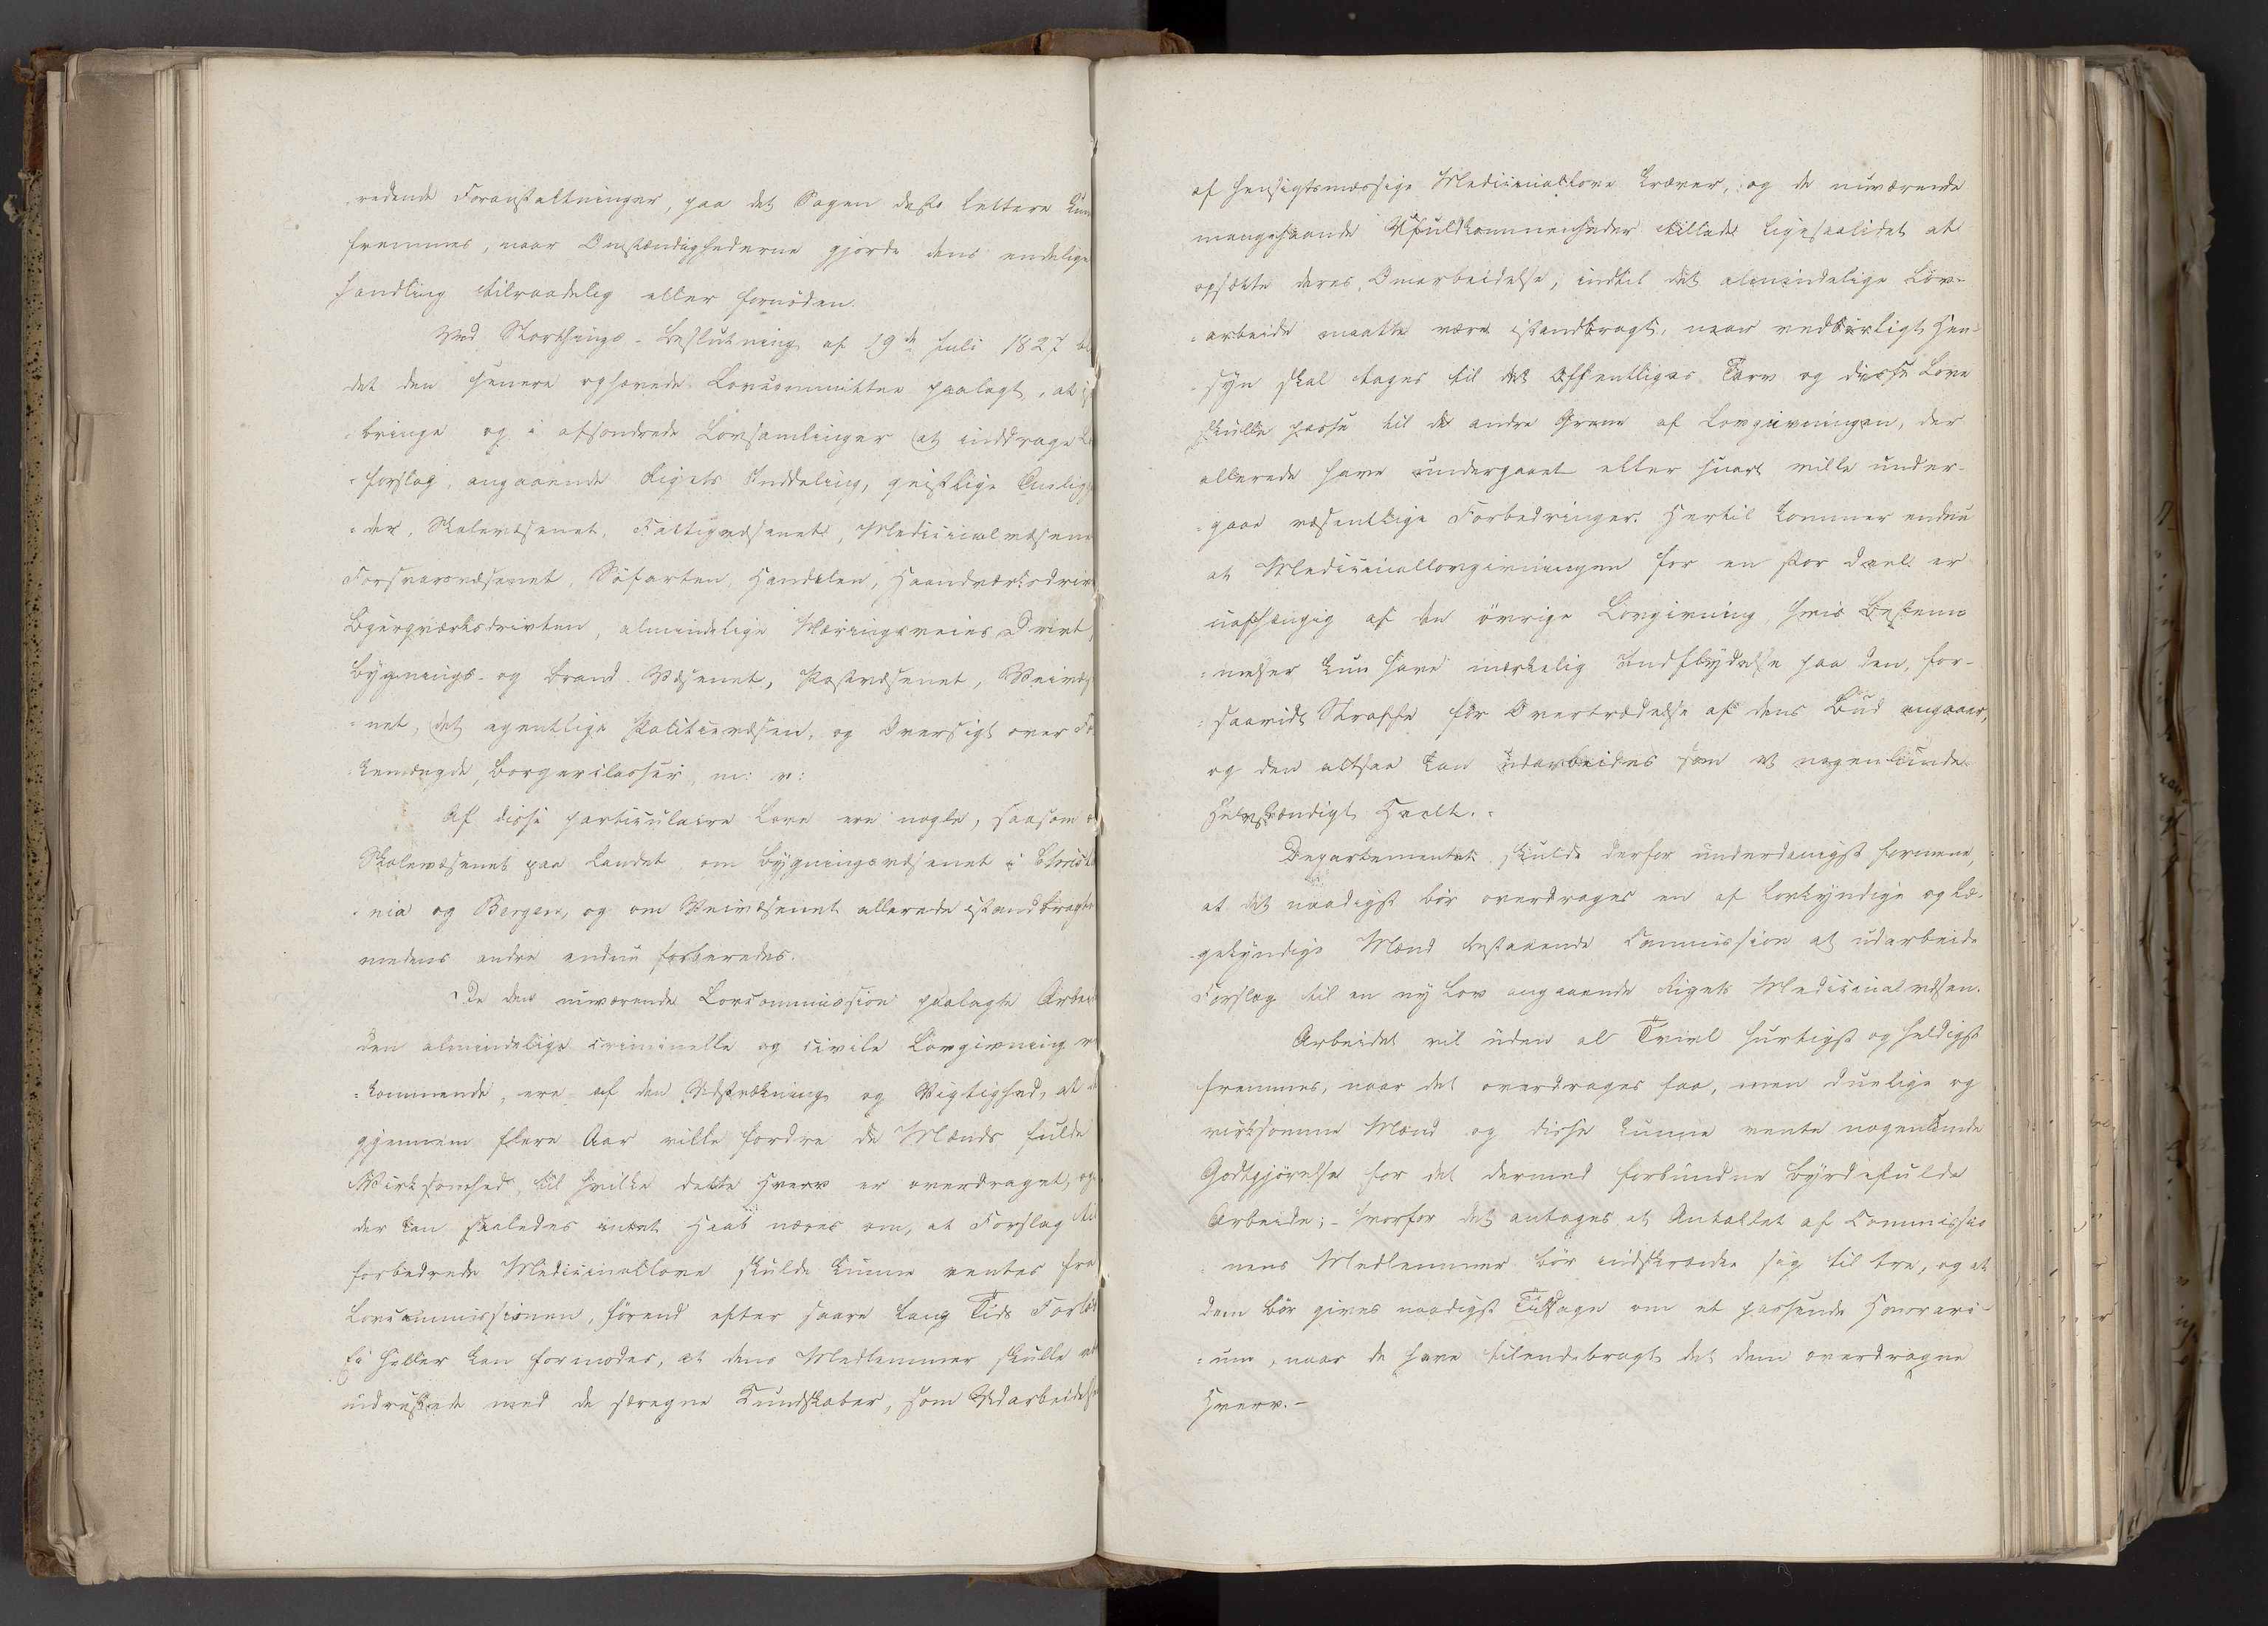 redende Foranstaltninger, paa det Sagen desto lettere kun
fremmes, naar Omstændighederne gjorde dens endelige
handling tilraadelig eller fornöden.
Ved Storthings-Beslutning af 19de Juli 1827 bl
det den senere ophævede Lovcommittee paalagt, at
bringe og i afsondrede Lovsamlinger at inddrage
-forslag, angaaende Rigets Inddeling, geistlige Anligg
=der, Skolevæsenet, Fattigvæsenet, Medicinalvæsene
Forsvarsvæsenet, Söfarten, Handelen, Haandværksdriv
Bjergværksdriften, almindelige Næringsveies Drivt,
Bygnings- og Brand-Væsenet, Postvæsenet, Veivæs
=net, det egentlige Politievæsen, og Oversigt over Fo
kemængde, Borgerclasser, m: v:
Af disse particulaire Love ere nogle, saasom
Skolevæsenet paa Landet, om Bygningsvæsenet i Christi
=nia og Bergen, og om Veivæsenet allerede istandbragte
medens andre endnu forberedes.
De den nuværende Lovcommission paalagte Arbei
den almindelige criminelle og civile Lovgivning ve
=kommende, ere af den Udstrækning og Vigtighed, at
gjennem flere Aar ville fordre de Mænds fulde
Virksomhed, til hvilke dette Hverv er overdraget, og
der kan saaledes intet Haab næres om, at Forslag til
forbedrede Medicinallove skulde kunne ventes fra
Lovcommissionen, förend efter saare lang Tids Forlöb
Ei heller kan formodes, at dens Medlemmer skulle
udrustede med de særegne Kundskaber, som Udarbeidels
af hensigtsmæssige Medicinallove kræver, og de nuværende
mangehaande Ufuldkommenheder tillade ligesaalidet at
opsætte deres Omarbeidelse, indtil det almindelige Lov=
=arbeide maatte være istandbragt, naar vedbörligt Hen-
syn skal tages til det Offentliges Tarv og disse Love
skulle passe til de andre Grene af Lovgivningen, der
allerede have undergaaet eller snart ville under-
=gaae væsentlige Forbedringer. Hertil kommer endnu
at Medicinallovgivningen for en stor Deel er
uafhængig af den övrige Lovgivning, hvis Bestem=
=melser kun have mærkelig Indflydelse paa den, for-
=saavidt Straffe for Overtrædelse af dens Bud angaaer,
og den altsaa kan udarbeides som et nogenlunde
selvstændigt Heelt.-
Departementet skulde derfor underdanigst formene,
at det naadigst bör overdrages en af lovkyndige og læ-
gekyndige Mænd bestaaende Commission at udarbeide
Forslag til en ny Lov angaaende Rigets Medicinalvæsen.
Arbeidet vil uden al Tvivl hurtigst og heldigst
fremmes, naar det overdrages faa, men duelige og
virksomme Mænd og disse kunne vente nogenlunde
Godtgjörelse for det dermed forbundne byrdefulde
Arbeide; - hvorfor det antages, at Antallet af Commissio
nens Medlemmer bör indskrænke sig til tre, og at
dem bör gives naadigst Tilsagn om et passende Honorari-
=um, naar de have tilendebragt det dem overdragne
Hverv.-